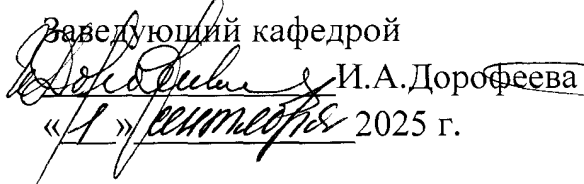 Заведующий кафедрой
И.А.Дорофеева
«1» сентября 2025 г.